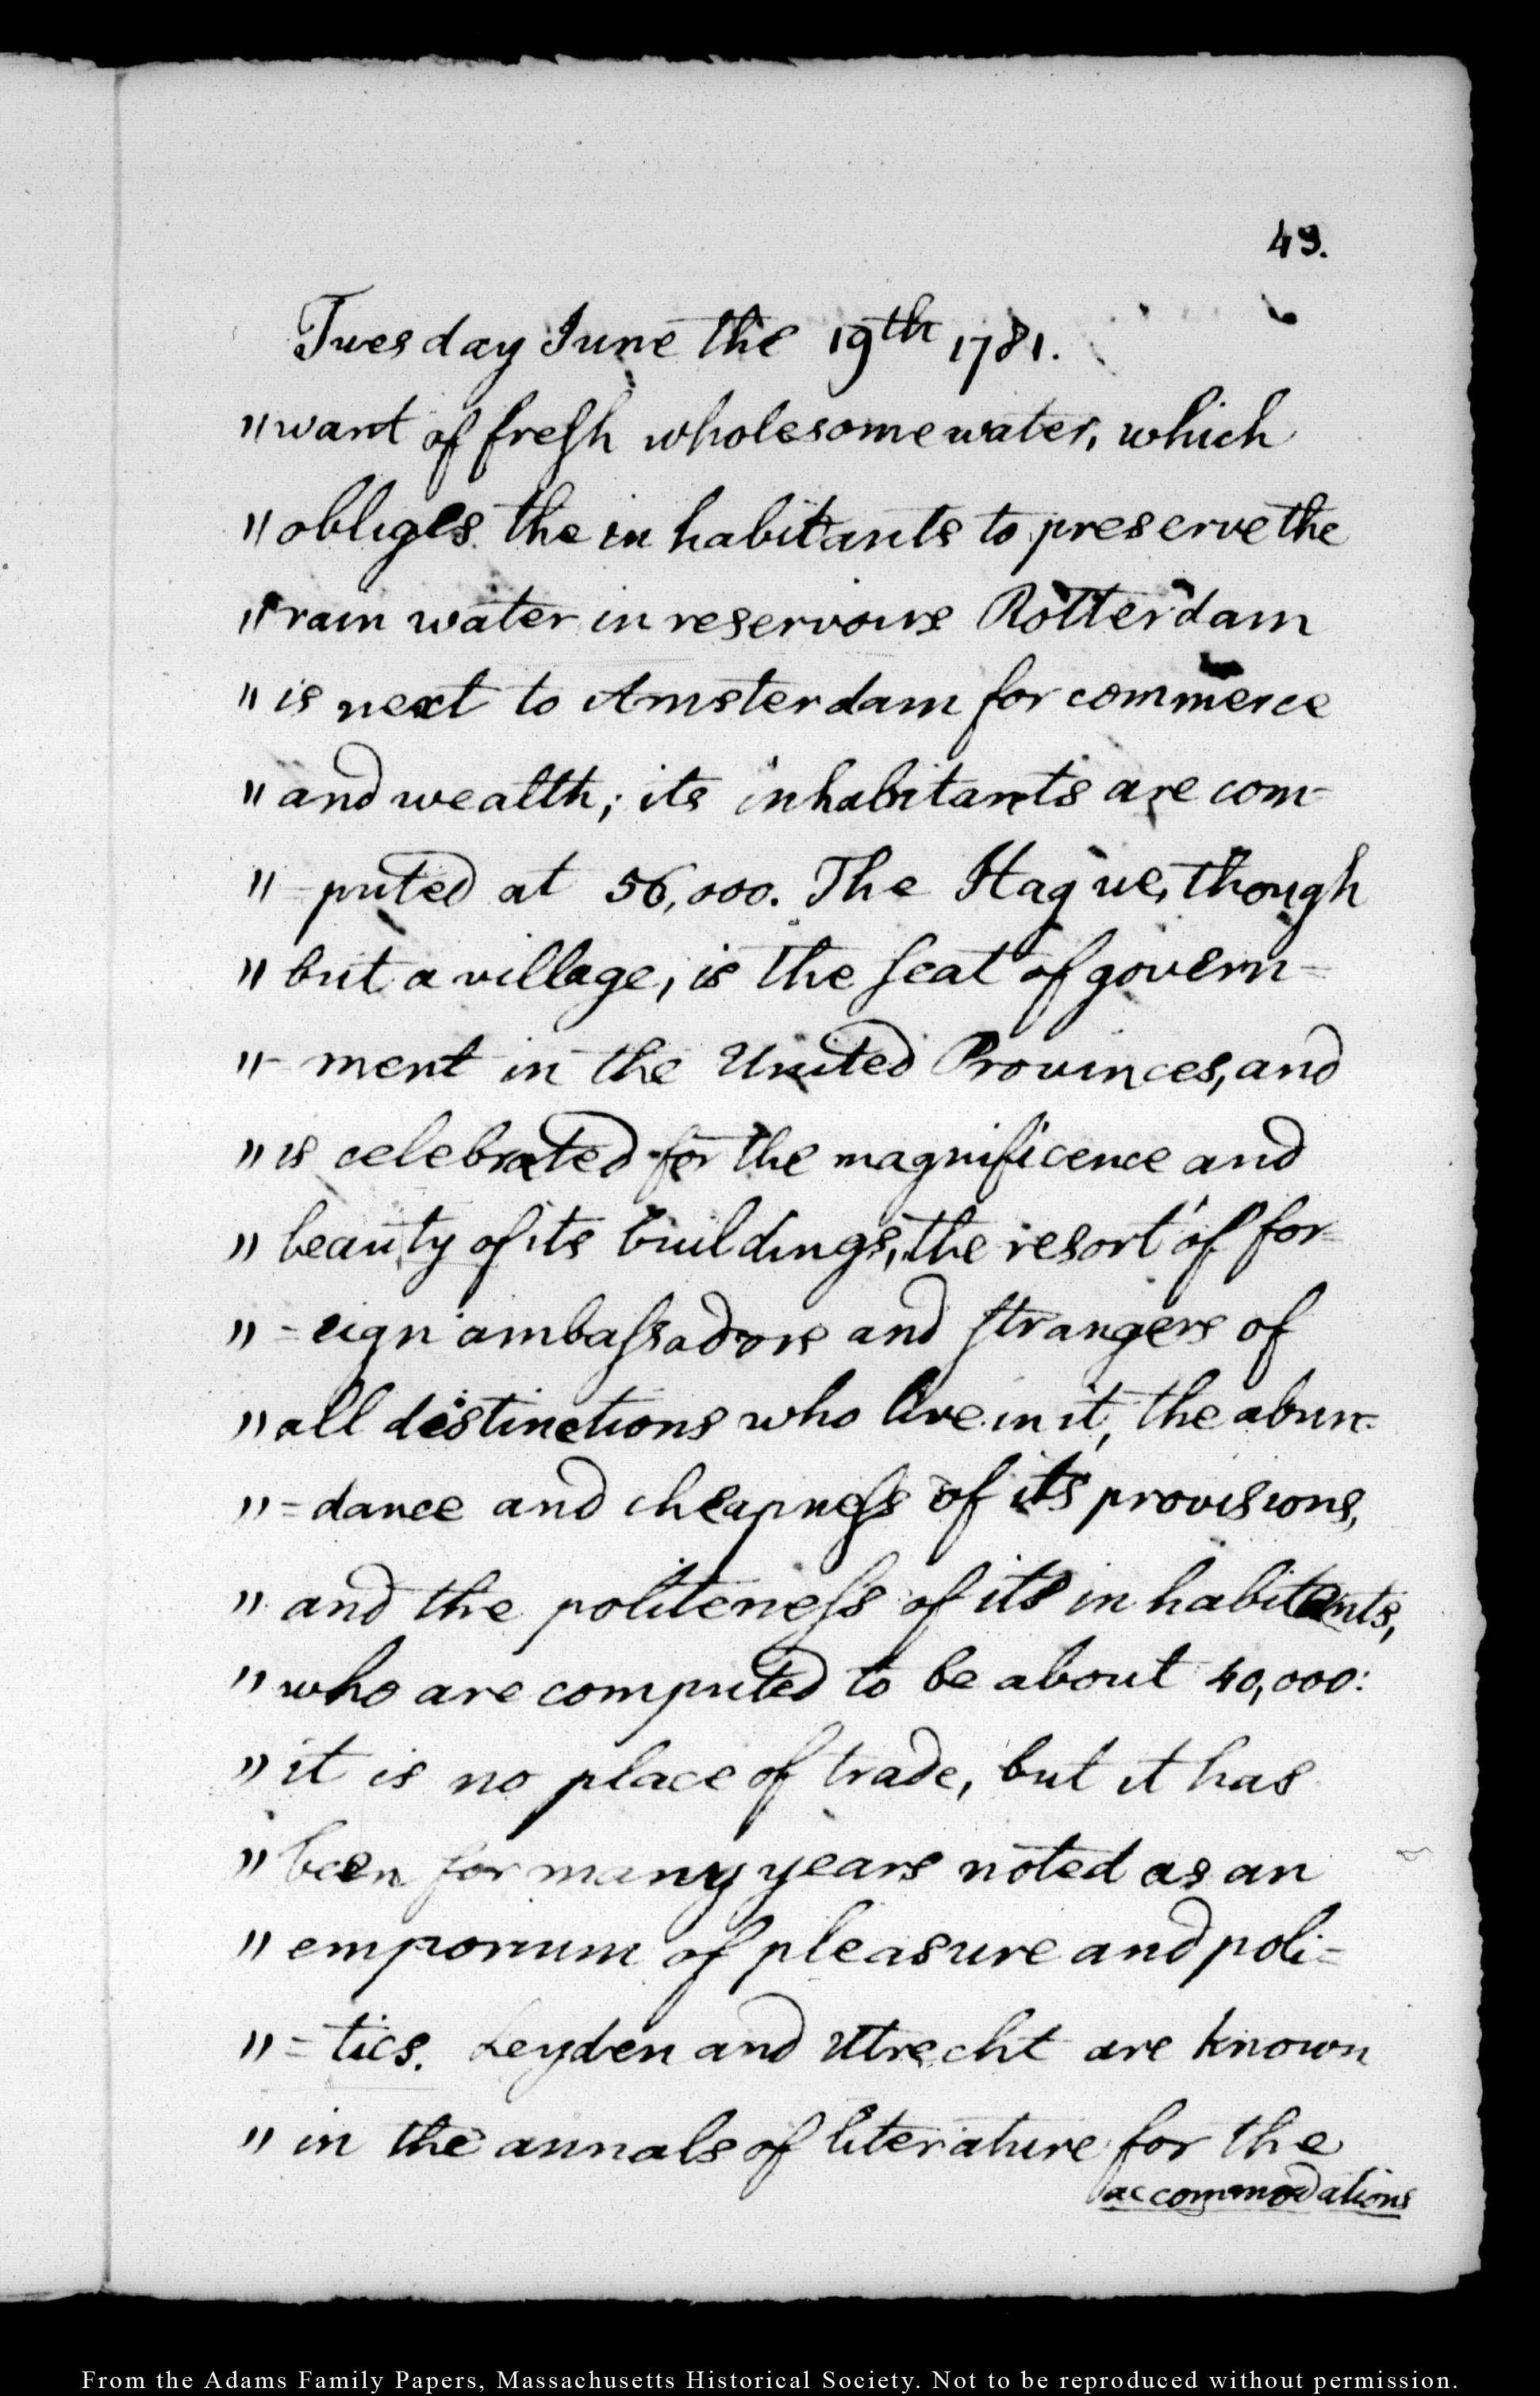 49.
Tuesday June the 19th 1781.
"want of fresh wholesome water, which
"obliges the inhabitants to preserve the
"rain water in reservoirs Rotterdam
"is next to Amsterdam for commerce
"and wealth; its inhabitants are com-
"-puted at 56,000. The Hague, though
"but a village, is the seat of govern=
"-ment in the United Provinces, and
"is celebrated for the magnificence and
"beauty of its buildings, the resort of for=
"=eign ambassadors and strangers of
"all distinctions who live in it, the abun=
"=dance and cheapness of its provisions,
"and the politeness of its inhabitants,
"who are computed to be about 40,000:
"it is no place of trade, but it has
"been for many years noted as an
"emporium of pleasure and poli=
"=tics. Leyden and Utrecht are known
"in the annals of literature for the
accommodations
From the Adams Family Papers, Massachusetts Historical Society. Not to be reproduced without permission.